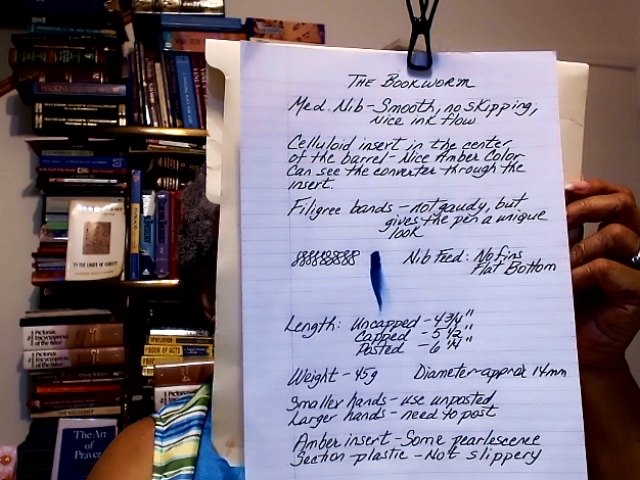 The Bookworm
Med. Nib - Smooth, no skipping,
Nice ink flow
Celluloid insert in the center
of the barrel - Nice Amber Color
Can see the converter through the
insert
Filigree bands - not gaudy, but
gives the pen a unique
look
Nib Feed: No fins
Flat Bottom
Length: Uncapped - 4 3/4"
Capped - 5 1/2"
Posted - 6 1/4"
Weight - 45g Diameter - approx 14mm
Smaller hands - use unposted
Larger hands - need to post
Amber insert - Some pearlescence
Section - plastic - Not slippery
Pictorial
Encyclopedia
of the Bible
BOOK OF ACTS
The Art of
Prayer